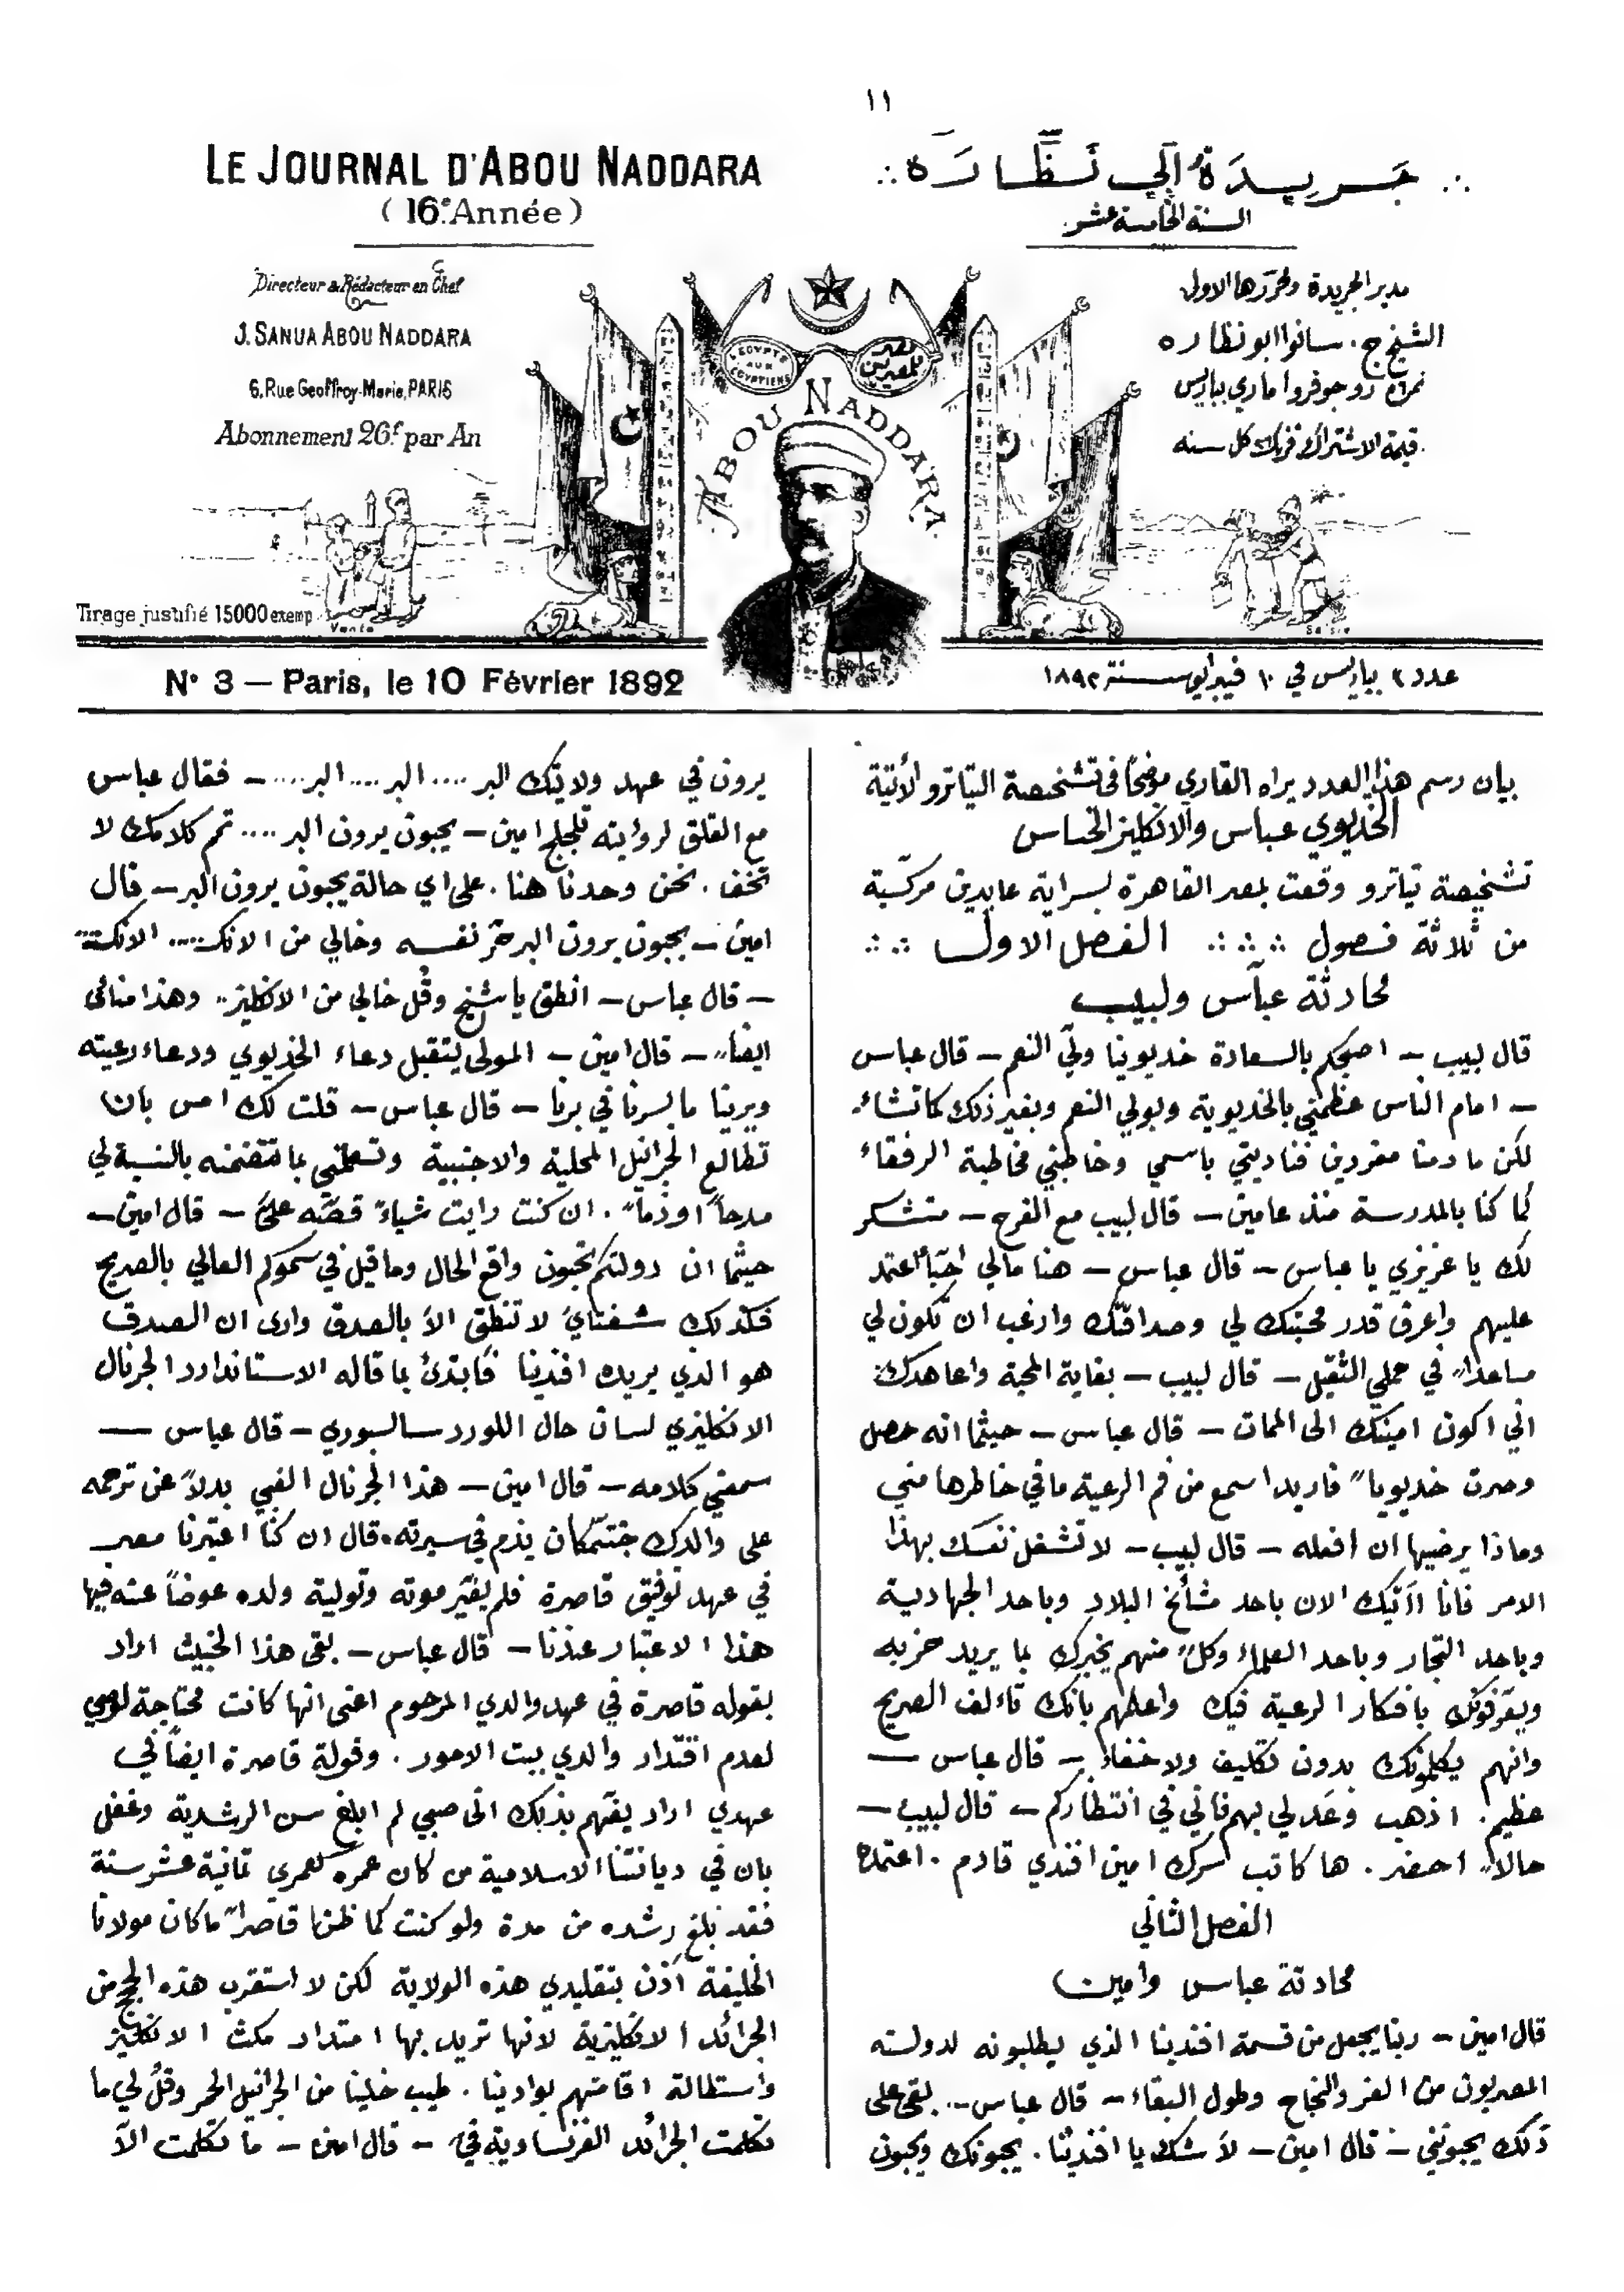 ١١
LE JOURNAL D'ABOU NADDARA
(16e. Année)
Directeur & Rédacteur en Chef
J. SANUA ABOU NADDARA
6, Rue Geoffroy-Marie, PARIS
Abonnement 26f par An
Tirage justifié 15000 exemp.
Vente
جريدة أبي نظارة
السنة الخامسة عشر
مدير الجريدة ومحررها الاول
الشيخ ج. سانوا ابو نظاره
نمرة ٦ رو جوفروا ماري بباريس
قيمة الاشتراك فرنك كل سنه
L'EGYPTE AUX EGYPTIENS
مصر للمصريين
ABOU NADDARA
Saisie
N° 3 — Paris, le 10 Février 1892
عدد ٣ بباريس في ١٠ فيبرايو سنة ١٨٩٢
بيان رسم هذا العدد يراه القاري موضحاً في تشخيصة التياترو الأتية
الخديوي عباس والانكليز الخساس
تشخيصة تياترو وقعت بمصر القاهرة بسراية عابدين مركبة
من ثلاثة فصول ∴ ∴ ∴ الفصل الاول ∴ ∴
محادثة عباس ولبيب
قال لبيب – اصبحكم بالسعادة خديوينا ولي النعم – قال عباس
– امام الناس عظمني بالخديوية وبولي النعم وبغير ذلك كما تشاء.
لكن ما دمنا مفردين فناديني باسمي وخاطبني مخاطبة الرفقاء
كما كنا بالمدرسة منذ عامين – قال لبيب مع الفرح – متشكر
لك يا عزيزي يا عباس – قال عباس – هنا مالي احباً أعتمد
عليهم واعرف قدر محبتك لي وصداقتك وارغب ان تكون لي
مساعداً في حملي الثقيل – قال لبيب – بغاية المحبة واعاهدك
اني اكون امينك الى الممات – قال عباس – حيثما انه حصل
وصرت خديوياً فاريد اسمع من فم الرعية ما في خاطرها مني
وماذا يرضيها ان افعله – قال لبيب – لا تشغل نفسك بهذا
الامر فانا اآتيك الان باحد مشائخ البلاد وباحد الجهادية
وباحد التجار وباحد العلماء وكلٌ منهم يخبرك بما يريد حزبه
ويعرفونك بافكار الرعية فيك واعلمهم بانك تألف الصريح
وانهم يكلمونك بدون تكليف ولا خفاء – قال عباس –
عظيم. اذهب وعَد لي بهم فاني في انتظاركم – قال لبيب –
حالاً احضر. ها كاتب سرك امين افندي قادم. اعتمده
الفصل الثاني
محادثة عباس وامين
قال امين – ربنا يجعل من قسمة افندينا الذي يطلبونه لدولته
المصريون من العز والنجاح وطول البقاء – قال عباس – بقى على
ذلك يحبوني – قال امين – لا شك يا افندينا. يحبونك ويحبون
يرون في عهد ولايتك البر .... البر .... البر .... – فقال عباس
مع القلق لرؤيته تلجلج امين – يحبون يرون البر .... تم كلامك لا
تخف. نحن وحدنا هنا. على اي حالة يحبون يرون البر – قال
امين – يحبون يرون البر حُر نفسه وخالي من الانك .... الانك ....
– قال عباس – انطق يا شيخ وقُل خالي من الانكليز .. وهذا منائي
ايضاً – قال امين – المولى يتقبل دعاء الخديوي ودعاء رعيته
ويرينا ما يسرنا في برنا – قال عباس – قلت لك امس بان
تطالع الجرانيل المحلية والاجنبية وتعلمني بما تتضمنه بالنسبة لي
مدحاً او ذماً. ان كنت رايت شياءً قصّه عليَّ – قال امين –
حيثما ان دولتكم تحبون واقع الحال وما قيل في سموكم العالي بالصريح
فكذلك شفتايَ لا تنطق الاَّ بالصدق وارى ان الصدق
هو الذي يريده افندينا فابتدئ بما قاله الاستاندارد الجرنال
الانكليزي لسان حال اللورد سالسبوري – قال عباس –
سمعني كلامه – قال امين – هذا الجرنال الغبي بدلاً عن ترحمه
على والدك جنتمكان يذم في سيرته. قال ان كنا اعتبرنا مصر
في عهد توفيق قاصرة فلم يغير موته وتولية ولده عوضاً عنه فيها
هذا الاعتبار عندنا – قال عباس – بقى هذا الخبيث اراد
بقوله قاصرة في عهد والدي المرحوم اعنى انها كانت محتاجة لوصي
لعدم اقتدار والدي ببت الامور. وقولة قاصرة ايضاً في
عهدي اراد يفهم بذلك انى صبي لم ابلغ سن الرشدية وغفل
بان في ديانتنا الاسلامية من كان عمره كعمري ثمانية عشر سنة
فقد بلغ رشده من مدة ولو كنت كما ظن قاصراً ما كان مولانا
الخليفة أذن بتقليدي هذه الولاية لكن لا استغرب هذه الحجج من
الجرائد الانكليزية لانها تريد بها امتداد مكث الانكليز
واستطالة اقامتهم بوادينا. طيب خلينا من الجرانيل الحمر وقُل لي ما
تكلمت الجرائد الفرنساوية فيَّ – قال امين – ما تكلمت الاَّ